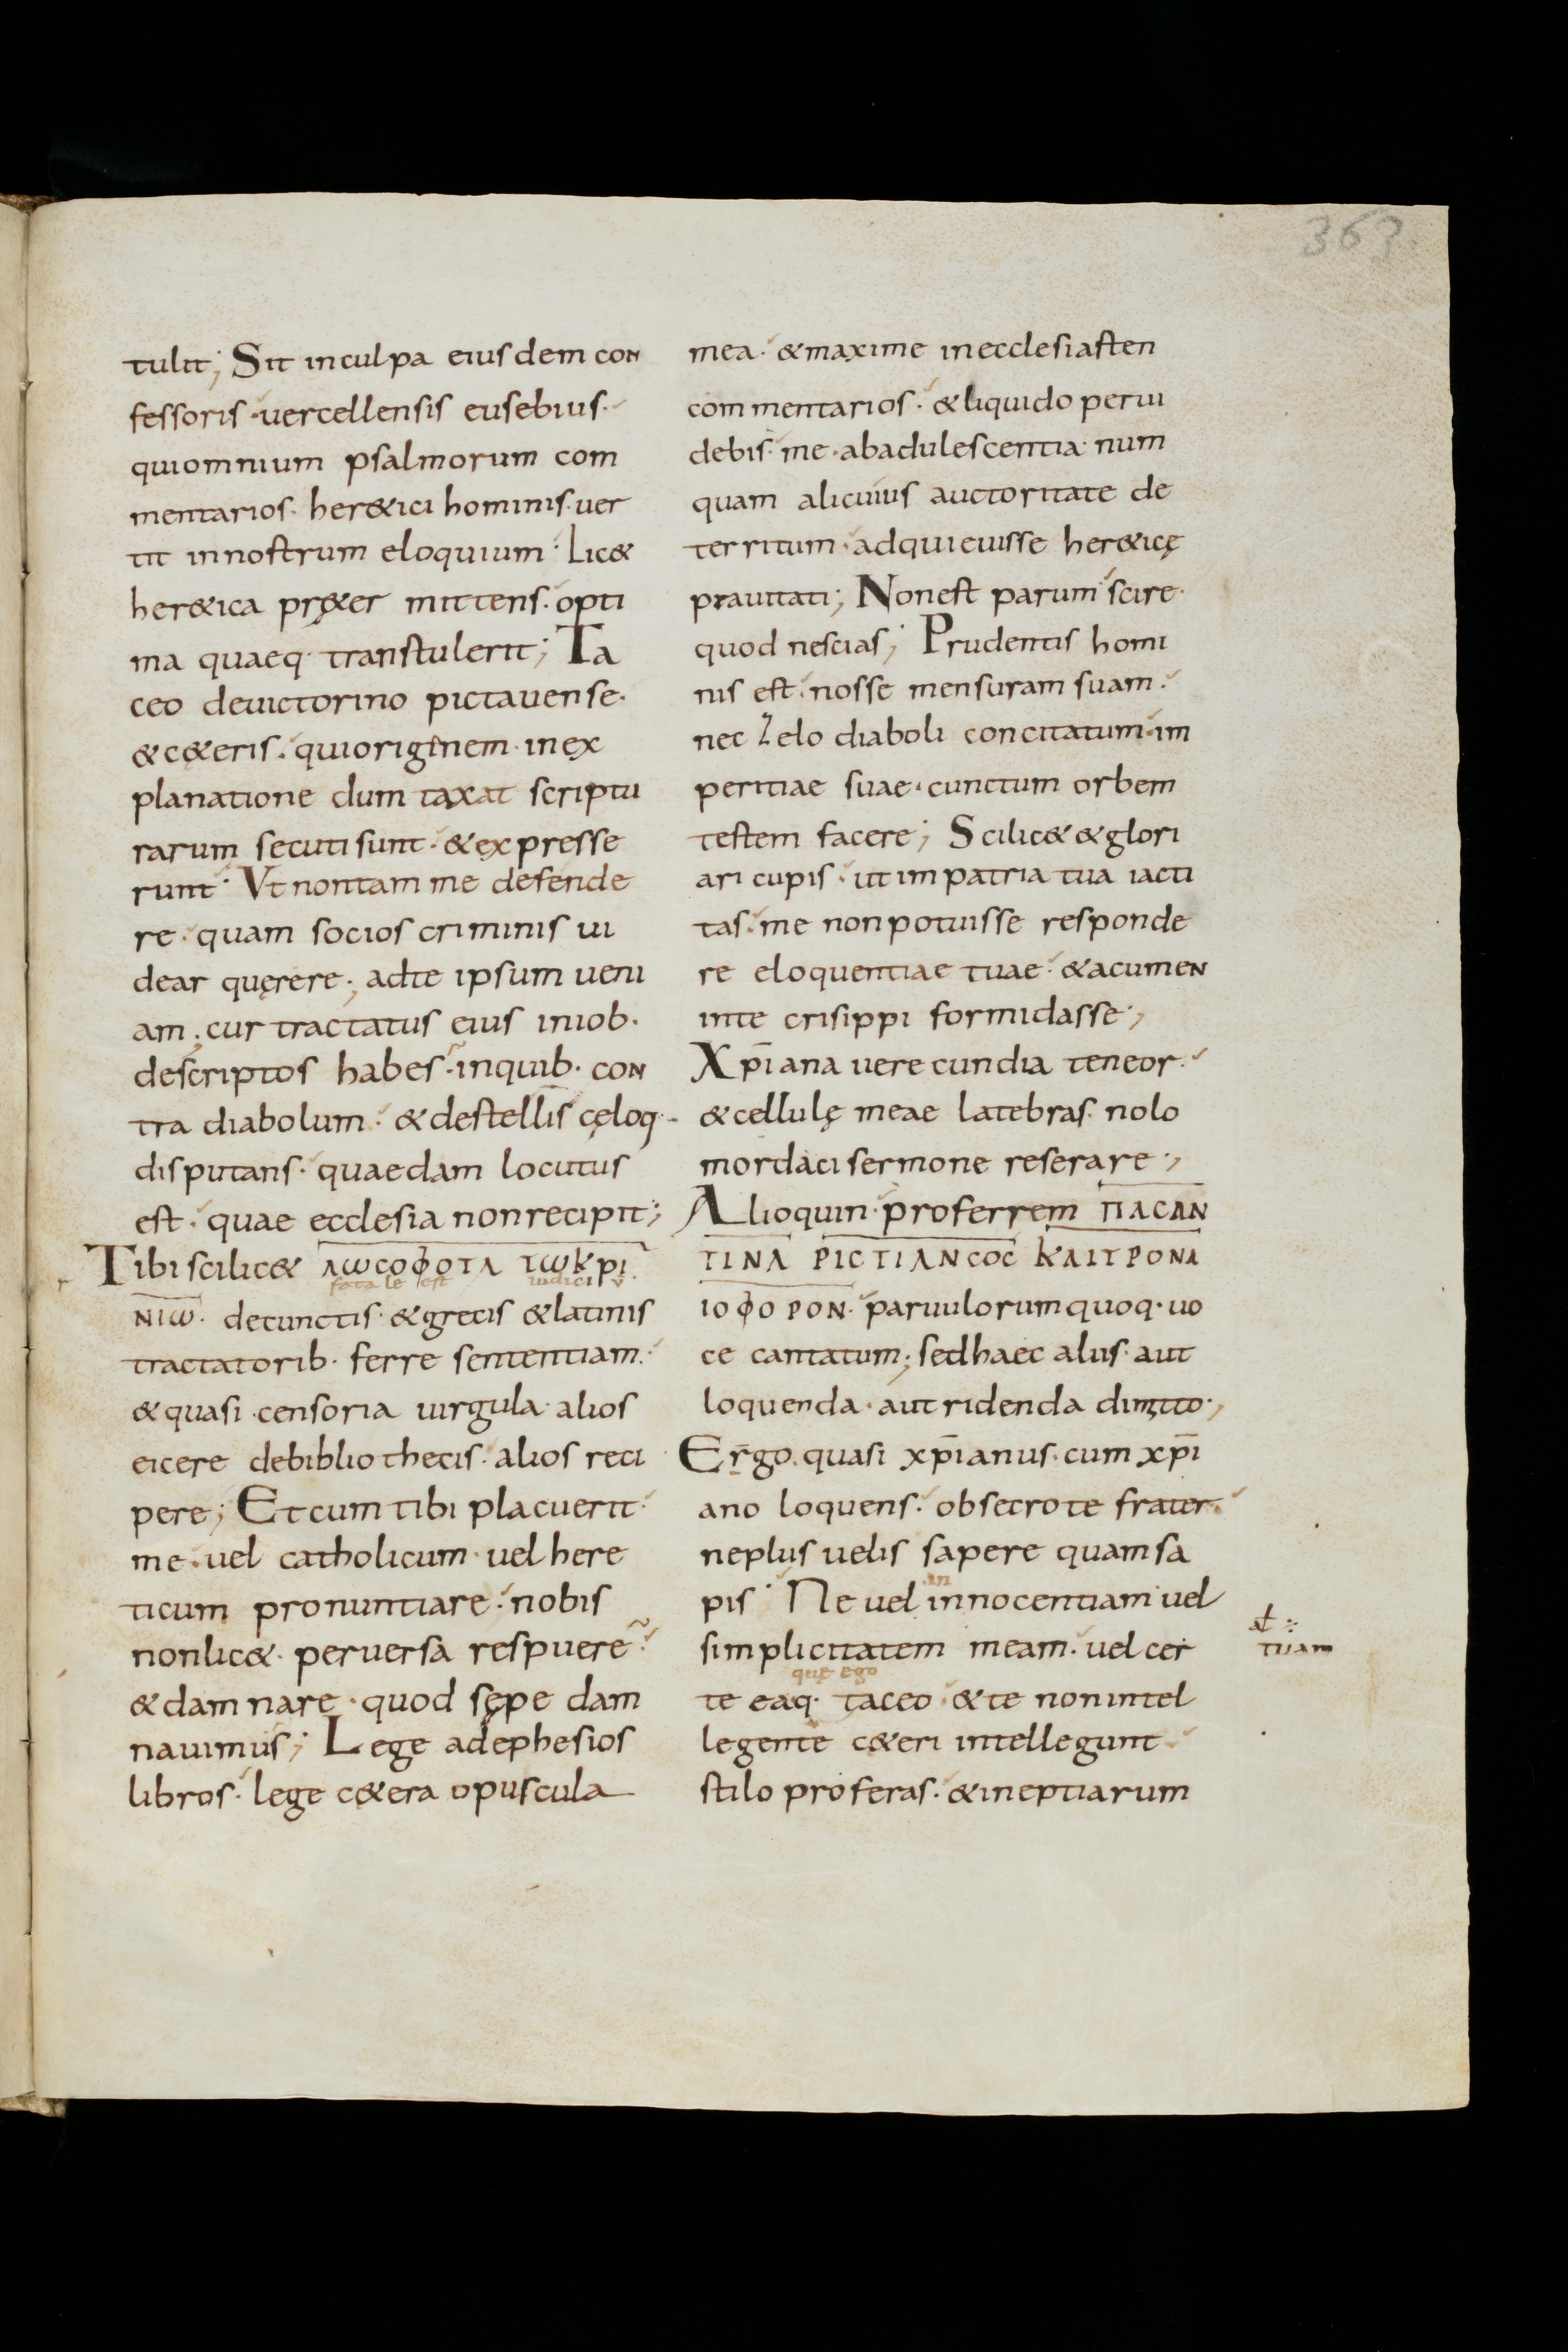 363
tulit; Sit inculpa eiusdem con
fessoris · uercellensis eusebius ·
quiomnium psalmorum com
mentarios · her&ici hominis · uer
tit innostrum eloquium · Lic&
her&ica pr&er mittens · opti
ma quaeq· transtulerit; Ta
ceo deuictorino pictauense ·
&c&eris · quiorigenem · inex
planatione dum taxat scriptu
rarum secuti sunt · &expresse
runt · Vt nontam me defende
re · quam socios criminis ui
dear quęrere; adte ipsum ueni
am; cur tractatus eius iniob ·
descriptos habes · inquib· con
tra diabolum · &destellis cęloq·
disputans · quaedam locutus
est · quae ecclesia nonrecipit;
Tibi scilic& ΛωCOΦOTΛ TωKρι
fatale est iudici
ΝΙω · decunctis · &grecis &latinis
tractatorib· ferre sententiam ·
&quasi censoria uirgula · alios
eicere debibliothecis · alios reci
pere; Et cum tibi placuerit ·
me · uel catholicum · uel here
ticum pronuntiare · nobis
nonlic& · peruersa respuere ·
&damnare · quod sępe dam
nauimus; Lege adephesios
libros · lege c&era opuscula
mea · &maxime inecclesiasten
commentarios · &liquido perui
debis · me · abadulescentia · num
quam alicuius auctoritate de
territum · adquieuisse her&icę
prauitati; Nonest parum scire ·
quod nescias; Prudentis homi
nis est · nosse mensuram suam ·
nec Zelo diaboli concitatum · im
peritiae suae · cunctum orbem
testem facere; Scilic& &glori
ari cupis · ut im patria tua iacti
tas · me nonpotuisse responde
re eloquentiae tuae · &acumen
inte crisippi formidasse;
Xp̄iana uerecundia teneor ·
&cellulę meae latebras · nolo
mordaci sermone reserare;
Alioquin · proferrem ΠΑCΑΝ
ΤΙΝΑ ΡΙCΤΙΑΝCΟC ΚΑΙΤΡΟΝΑ
ΙΟΦΟΡΟΝ · paruulorum quoq· uo
ce cantatum; sed haec aliis · aut
loquenda · aut ridenda dimitto;
Ergo · quasi xp̄ianus · cum xp̄i
ano loquens · obsecro te frater ·
neplus uelis sapere quamsa
pis · Ne uel innocentiam uel
in
simplicitatem meam · uel cer
ał
tuam
te eaq· taceo · &te nonintel
quę ego
legente c&eri intellegunt ·
stilo proferas · &ineptiarum